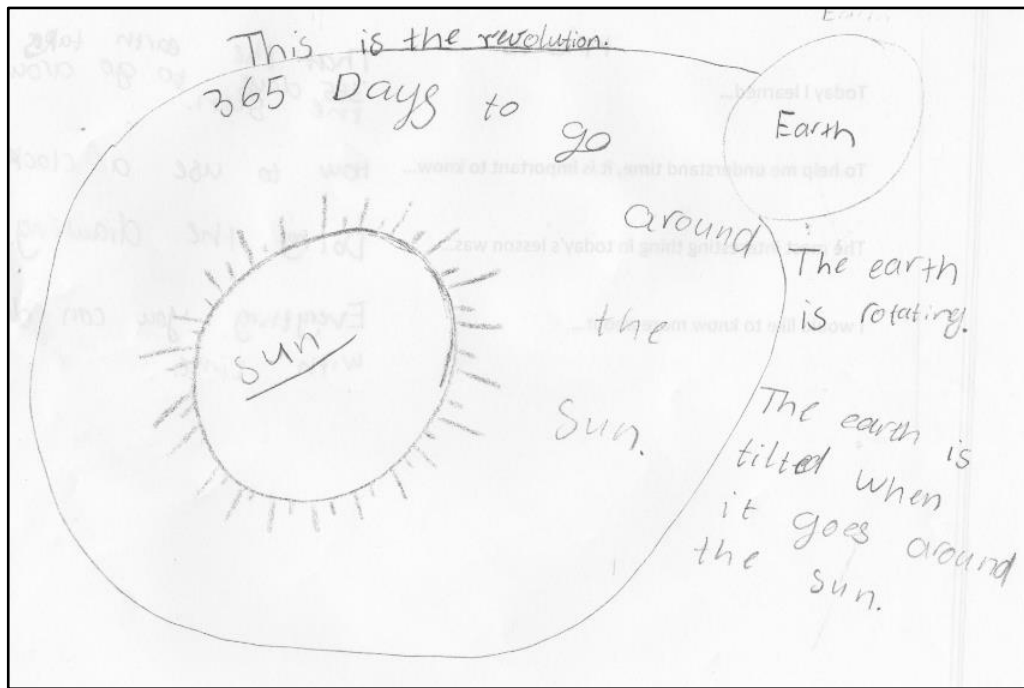 This is the revolution.
365 Days to go
around
the
Sun.
Earth
Sun
The earth
is rotating.
The earth is
tilted when
it goes around
the sun.